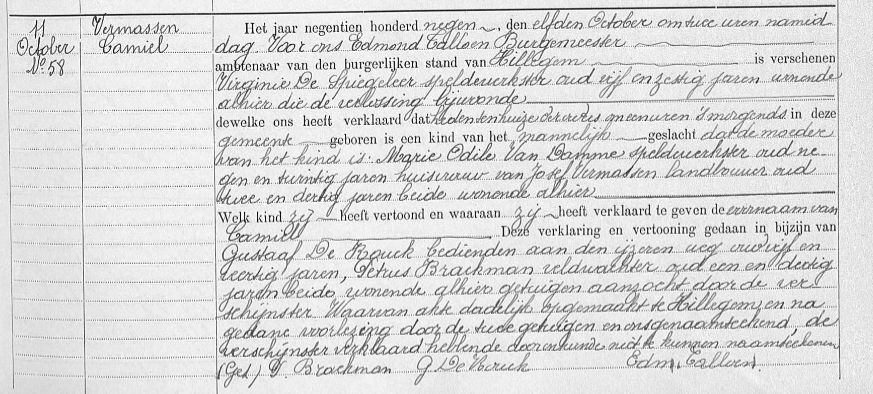 11
October
No. 58
Vermassen
Camiel
Het jaar negentien honderd negen, den elfden October om twee uren namid
dag. Voor ons Edmond Calloen Burgemeester
ambtenaar van den burgerlijken stand van Hillegem is verschenen
Virginie De Spiegeleer speldewerkster oud vijf en zestig jaren wonende
alhier die de verlossing bijwonde
dewelke ons heeft verklaard dat heden ten huize der ouders om een uren 's morgends in deze
gemeente geboren is een kind van het mannelijk geslacht dat de moeder
van het kind is: Marie Odile Van Damme speldwerkster oud ne-
gen en twintig jaren huisvrouw van Josef Vermassen landbouwer oud
twee en dertig jaren beide wonende alhier
Welk kind zij heeft vertoond en waaraan zij heeft verklaard te geven de voornaam van
Camill Deze verklaring en vertooning gedaan in bijzijn van
Gustaaf De Rouck bedienden aan den ijzeren weg oud vijf en
veertig jaren, Petrus Brackman veldwachter oud een en dertig
jaren beide wonende alhier getuigen aanzocht door de ver
schijnster Waarvan akte dadelijk opgemaakt te Hillegem, en na
gedane voorlezing door de twee getuigen en ons genaamteekend, de
verschijnster verklaard hebbende door onkunde niet te kunnen naamteekenen
(Get.) P. Brackman G. De Rouck Edm. Calloen.